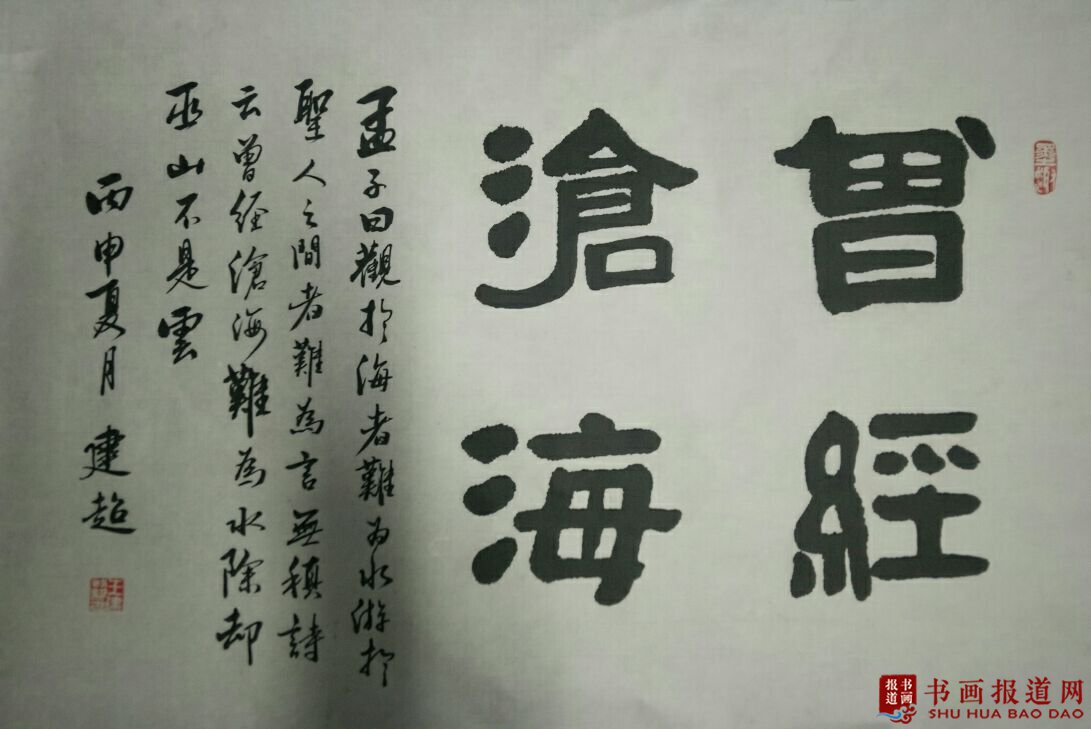 曾經
滄海
孟子曰觀於海者難為水游於
聖人之間者難為言無稹詩
云曾經滄海難為水除却
巫山不是雲
丙申夏月 建超
书画报道
书画报道网
SHU HUA BAO DAO